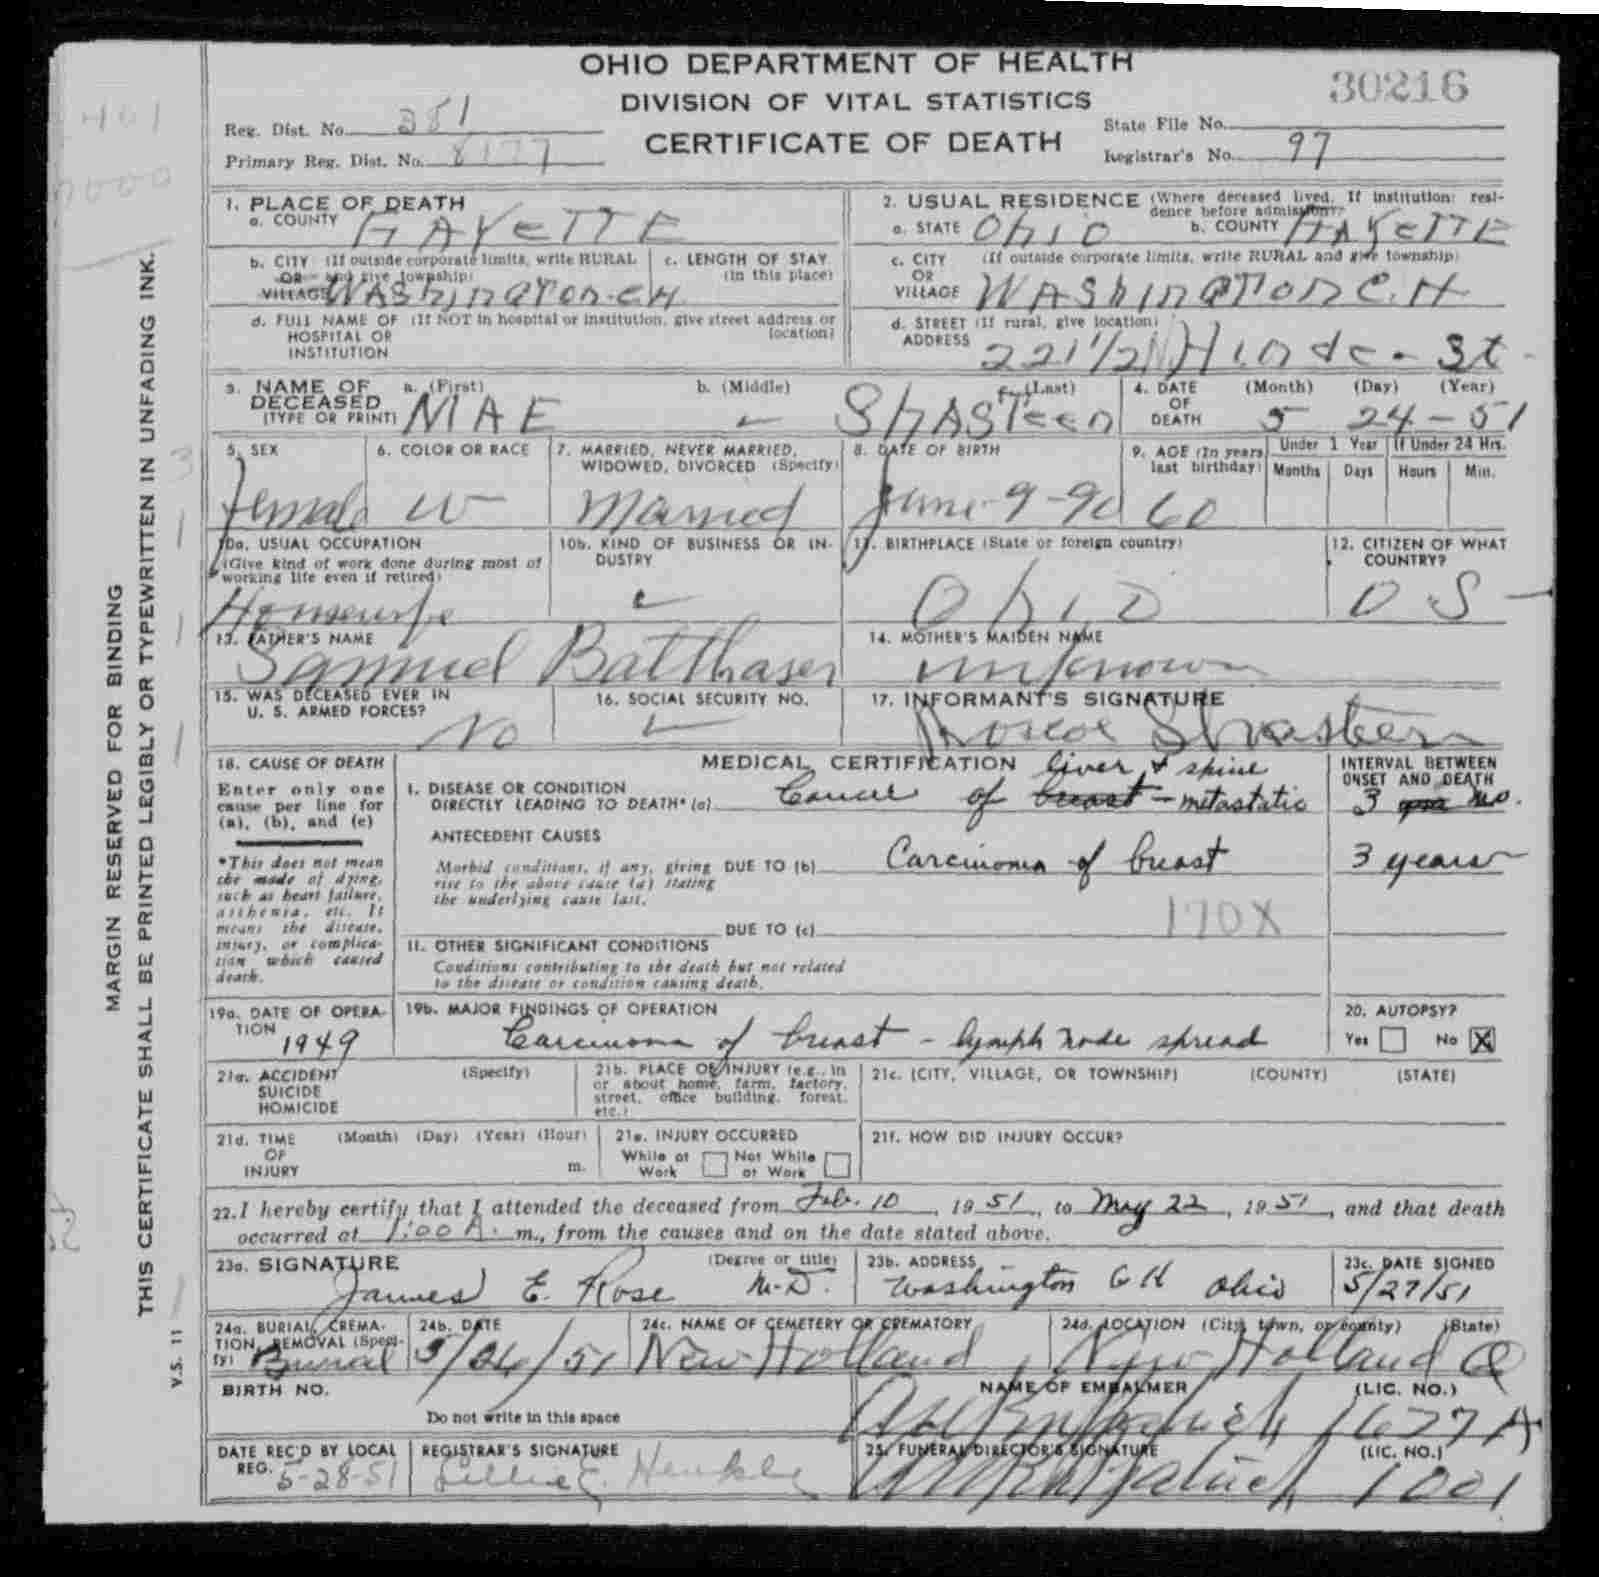 OHIO DEPARTMENT OF HEALTH
DIVISION OF VITAL STATISTICS
CERTIFICATE OF DEATH
30216
Reg. Dist. No. 351
Primary Reg. Dist. No. 8177
State File No.
Registrar's No. 97
MARGIN RESERVED FOR BINDING
THIS CERTIFICATE SHALL BE PRINTED LEGIBLY OR TYPEWRITTEN IN UNFADING INK.
V.S. 11
1. PLACE OF DEATH
a. COUNTY FAYETTE
b. CITY (If outside corporate limits, write RURAL
OR and give township)
VILLAGE WAShingTON-C.H.
c. LENGTH OF STAY
(in this place)
d. FULL NAME OF (If NOT in hospital or institution, give street address or
HOSPITAL OR location)
INSTITUTION
2. USUAL RESIDENCE (Where deceased lived. If institution: resi-
dence before admission)
a. STATE Ohio b. COUNTY FAYETTE
c. CITY (If outside corporate limits, write RURAL and give township)
OR
VILLAGE WAShingTON C.H
d. STREET (If rural, give location)
ADDRESS 221 1/2 N Hinde - St -
3. NAME OF
DECEASED
(TYPE OR PRINT)
a. (First) b. (Middle) c. (Last)
MAE ShASTeen
4. DATE (Month) (Day) (Year)
OF
DEATH 5 24-51
5. SEX
Female
6. COLOR OR RACE
W
7. MARRIED, NEVER MARRIED,
WIDOWED, DIVORCED (Specify)
Married
8. DATE OF BIRTH
June-9-90
9. AGE (In years
last birthday)
60
Under 1 Year
Months Days
If Under 24 Hrs.
Hours Min.
10a. USUAL OCCUPATION
(Give kind of work done during most of
working life even if retired)
Housewife
10b. KIND OF BUSINESS OR IN-
DUSTRY
11. BIRTHPLACE (State or foreign country)
Ohio
12. CITIZEN OF WHAT
COUNTRY?
U S -
13. FATHER'S NAME
Samuel Balthaser
14. MOTHER'S MAIDEN NAME
unknown
15. WAS DECEASED EVER IN
U. S. ARMED FORCES?
No
16. SOCIAL SECURITY NO.
17. INFORMANT'S SIGNATURE
Roscoe Shasteen
18. CAUSE OF DEATH
Enter only one
cause per line for
(a), (b), and (c)
*This does not mean
the mode of dying,
such as heart failure,
asthenia, etc. It
means the disease,
injury, or complica-
tion which caused
death.
MEDICAL CERTIFICATION
liver & spine
I. DISEASE OR CONDITION
DIRECTLY LEADING TO DEATH* (a) Cancer of breast - metastatic
INTERVAL BETWEEN
ONSET AND DEATH
3 mo.
ANTECEDENT CAUSES
Morbid conditions, if any, giving DUE TO (b) Carcinoma of breast 3 years
rise to the above cause (a) stating
the underlying cause last.
170X
DUE TO (c)
II. OTHER SIGNIFICANT CONDITIONS
Conditions contributing to the death but not related
to the disease or condition causing death.
19a. DATE OF OPERA-
TION
1949
19b. MAJOR FINDINGS OF OPERATION
Carcinoma of breast - lymph node spread
20. AUTOPSY?
Yes No X
21a. ACCIDENT (Specify)
SUICIDE
HOMICIDE
21b. PLACE OF INJURY (e.g., in
or about home, farm, factory,
street, office building, forest,
etc.)
21c. (CITY, VILLAGE, OR TOWNSHIP) (COUNTY) (STATE)
21d. TIME (Month) (Day) (Year) (Hour)
OF
INJURY m.
21e. INJURY OCCURRED
While at Work Not While at Work
21f. HOW DID INJURY OCCUR?
22. I hereby certify that I attended the deceased from Feb. 10, 1951, to May 22, 1951, and that death
occurred at 1:00 A. m., from the causes and on the date stated above.
23a. SIGNATURE (Degree or title)
James E. Rose M.D.
23b. ADDRESS
Washington C H Ohio
23c. DATE SIGNED
5/27/51
24a. BURIAL, CREMA-
TION, REMOVAL (Speci-
fy) Burial
24b. DATE
5/26/51
24c. NAME OF CEMETERY OR CREMATORY
New Holland
24d. LOCATION (City, town, or county) (State)
New Holland O
BIRTH NO.
Do not write in this space
NAME OF EMBALMER (LIC. NO.)
1677A
DATE REC'D BY LOCAL
REG. 5-28-51
REGISTRAR'S SIGNATURE
25. FUNERAL DIRECTOR'S SIGNATURE (LIC. NO.)
1001